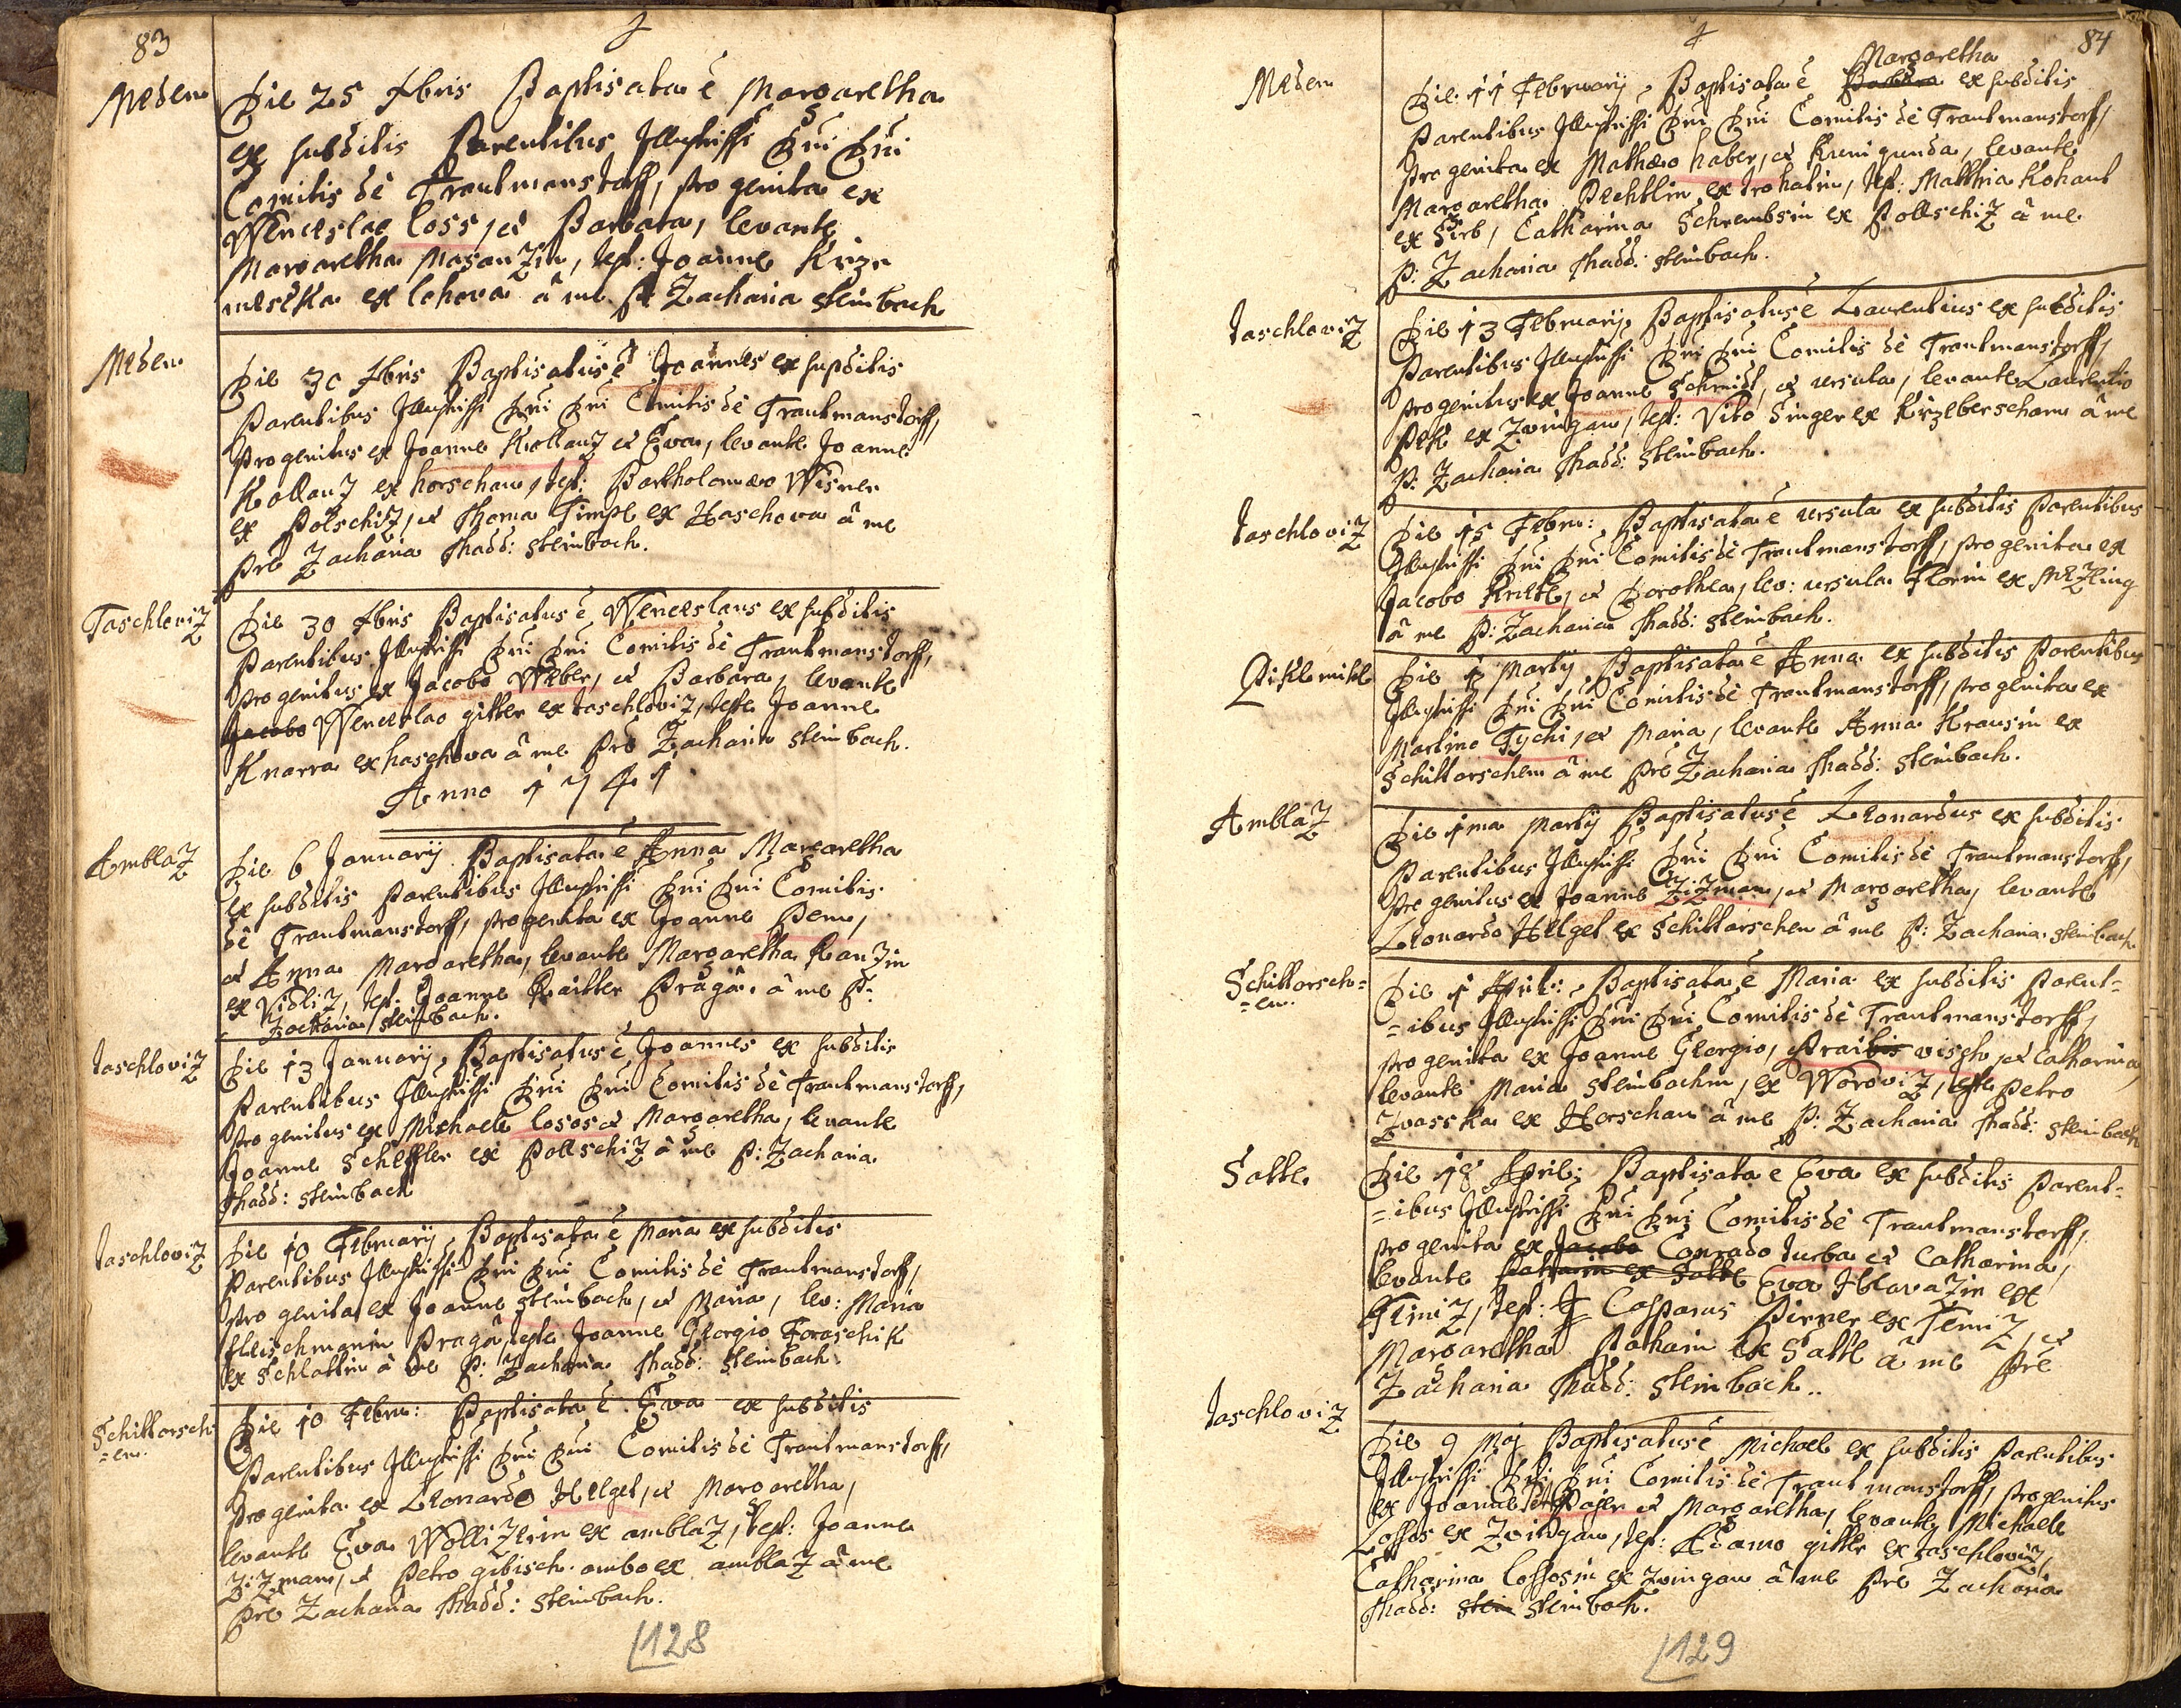 83
Meden
Die 25 Xbris Baptisata ē Margaretha
ex subditis Parentibus Illustrissi Dni Dni
Comitis de Trautmanstorff, progenita ex
Wenceslao Loss, et Barbara, levante
Margaretha Masanzin, test: Joanne Krze
mescka ex Lohova à me P. Zacharia Steinbach
Meden
Die 30 Xbris Baptisatus ē Joannes ex supditis
Parentibus Illustrissi Dni Dni Comitis de Trautmanstorff,
progenitus ex Joanne Kollanz et Eva, levante Joanne
Kollanz ex horschau, test: Bartholomaeo Wisner
ex Polschiz, et Thoma Timpl ex Haschova à me
Pre Zacharia Thadd: Steinbach.
Taschloviz
Die 30 Xbris Baptisatus ē Wenceslaus ex subditis
Parentibus Illustrissi Dni Dni Comitis de Trautmanstorff,
progenitus ex Jacobo Weber, et Barbara, levante
Jacobo Wenceslao gitter ex taschloviz, teste Joanne
Knarra ex haschova à me Pre Zacharia Steinbach.
Anno 1741
Amblaz
Die 6 Januarij Baptisata ē Anna Margaretha
ex subditis Parentibus Illustrissi Dni Dni Comitis
de Trautmanstorff, progenita ex Joanne Pem,
et Anna Margaretha, levante Margaretha Ranzin
ex Vidliz, test. Joanne Raitter Praga. à me P.
Zacharia Steinbach.
Taschloviz
Die 13 Januarij Baptisatus ē Joannes ex subditis
Parentibus Illustrissi Dni Dni Comitis de Trautmanstorff,
progenitus ex Michaele Losos et Margaretha, levante
Joanne Scheffler ex Pollschiz à me P: Zacharia
Thadd: Steinbach
Taschloviz
Die 10 Februarij Baptisata ē Maria ex subditis
Parentibus Illustrissi Dni Dni Comitis de Trautmanstorff,
progenita ex Joanne Steinbach, et Maria, lev: Maria
fleischmanin Praga, teste Joanne Georgio Foraschik
ex Schlattin à me P: Zacharia Thadd: Steinbach.
Schittorsch
=en.
Die 10 Febru: Baptisata ē Eva ex subditis
Parentibus Illustrissi Dni Dni Comitis de Trautmanstorff,
progenita ex Leonardo Helgel, et Margaretha,
levante Eva Wollizerin ex amblaz, test: Joanne
Zizman, et Petro gibisch ambo ex amblaz à me
Pre Zacharia Thadd: Steinbach.
128
84
Meden
Margaretha
Die 11 Februarij Baptisata ē Barbara ex subditis
Parentibus Illustrissi Dni Dni Comitis de Trautmanstorff,
progenita ex Mathaeo haber, et Kunigunda, levante
Margaretha Pechtlin ex trohatin, test: Matthia Kohaut
ex Sirb, Catharina Schrembsin ex Pollschiz à me
P: Zacharia Thadd: Steinbach.
Taschloviz
Die 13 Februarij Baptisatus ē Laurentius ex subditis
Parentibus Illustrissi Dni Dni Comitis de Trautmanstorff,
progenitus ex Joanne Schmidt, et ursula, levante Laurentio
Pek ex Zwingau, test: Vito Singer ex Krzeberscham à me
P: Zacharia Thadd: Steinbach.
Taschloviz
Die 15 Febru: Baptisata ē ursula ex subditis Parentibus
Illustrissi Dni Dni Comitis de Trautmanstorff, progenita ex
Jacobo Knetl, et Dorothea, lev: ursula Florin ex Mezling
à me P: Zacharia Thadd: Steinbach.
Die 1 Martij Baptisata ē Anna ex subditis Parentibus
Illustrissi Dni Dni Comitis de Trautmanstorff, progenita ex
Martino Tychi, et Maria, levante Anna Krausin ex
Schittorschen à me Pre Zacharia Thadd: Steinbach.
Amblaz
Die 1ma Martij Baptisatus ē Leonardus ex subditis
Parentibus Illustrissi Dni Dni Comitis de Trautmanstorff,
progenitus ex Joanne Zizman, et Margaretha, levante
Leonardo Helgel ex Schittorschen à me P: Zacharia Steinbach
Schittorsch=
=en.
Die 1 April: Baptisata ē Maria ex subditis Parent=
=ibus Illustrissi Dni Dni Comitis de Trautmanstorff,
progenita ex Joanne Georgio, Praibis visch, et Catharina,
levante Maria Steinbachin, ex Woroviz, teste Petro
Zvasska ex Horschau à me P: Zacharia Thadd: Steinbach
Satte
Die 18 April: Baptisata ē Eva ex subditis Parent=
=ibus Illustrissi Dni Dni Comitis de Trautmanstorff,
progenita ex Jacobo Conrado turba et Catharina,
levante ex Satte Eva Hlavazin ex
Temiz, test: Casparus Pirner ex Temiz, et
Margaretha Pathain ex Satte à me Pre
Zacharia Thadd: Steinbach..
Taschloviz
Die 9 Maj Baptisatus ē Michael ex subditis Parentibus
Illustrissi Dni Dni Comitis de Trautmanstorff, progenitus
ex Joanne Pajer et Margaretha, levante Michaele
Lossos ex Zwingau, test: Adamo gitter ex taschloviz,
Catharina Lossosin ex zwingau à me Pre Zacharia
Thadd: Stein Steinbach.
129